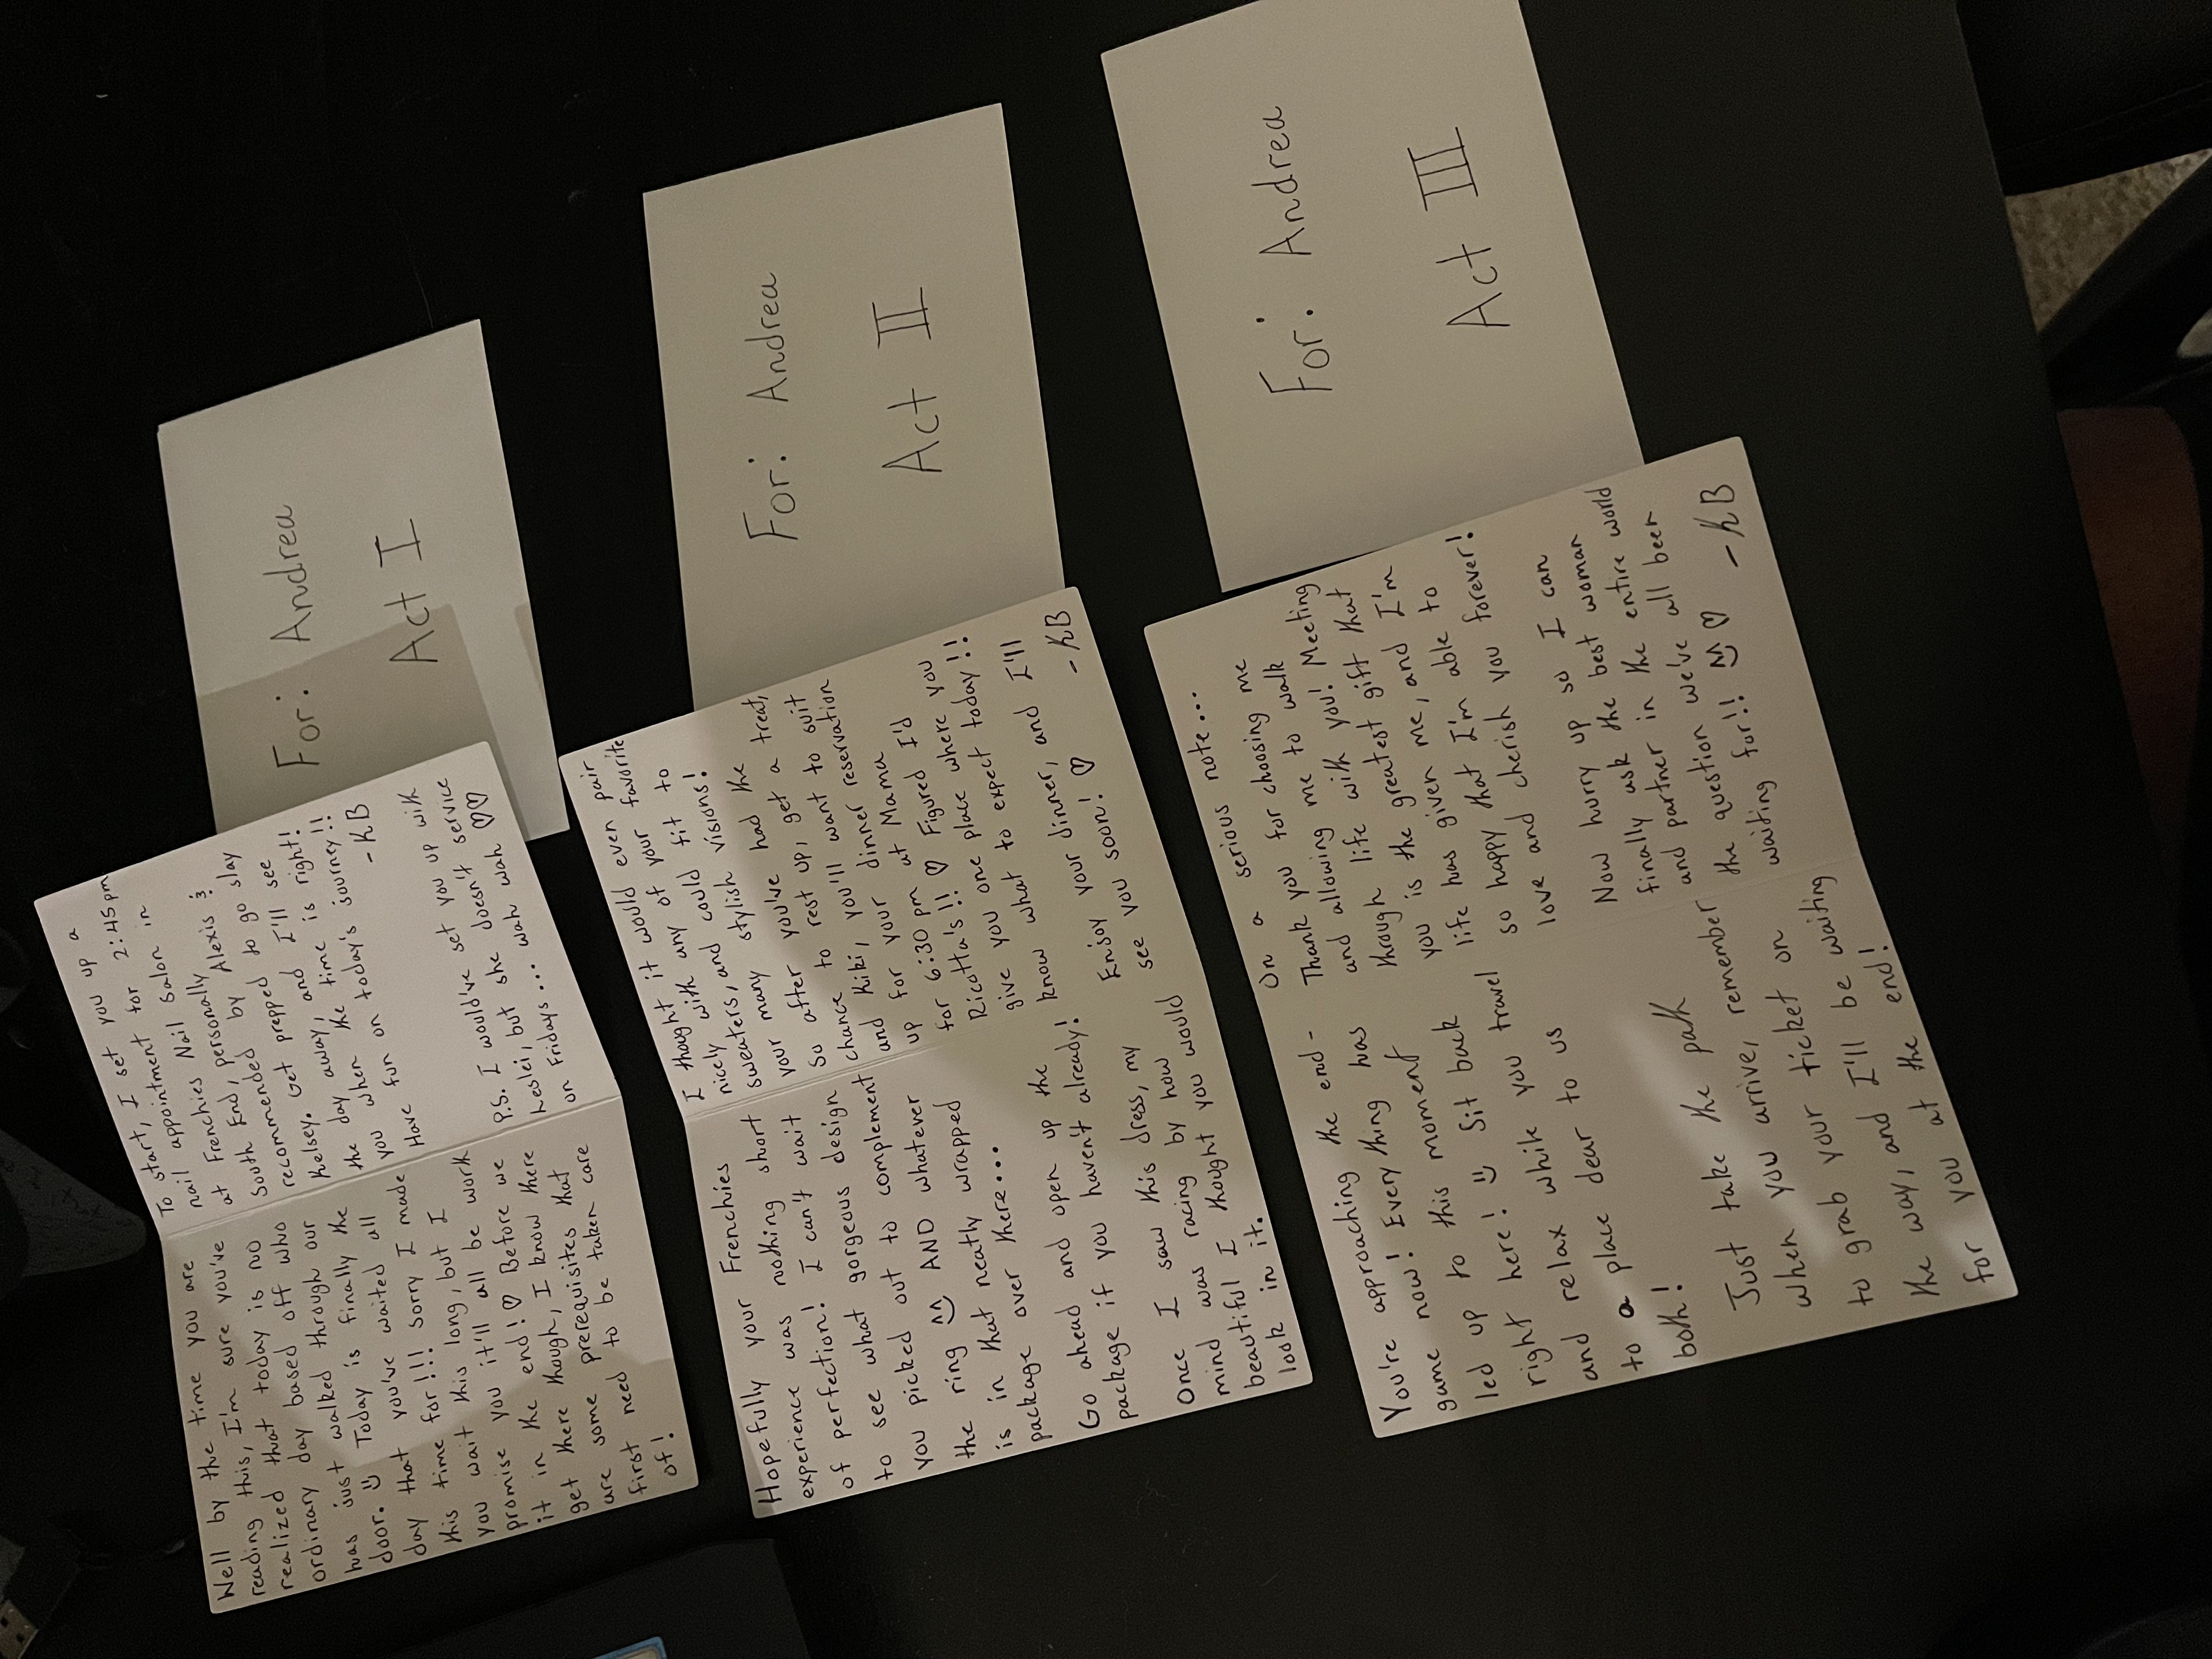 Well by the time you are
reading this, I'm sure you've
realized that today is no
ordinary day based off who
has just walked through our
door. Today is finally the
day that you've waited all
this time for!!! Sorry I made
you wait this long, but I
promise you it'll all be work
it in the end! ♡ Before we
get there though, I know there
are some prerequisites that
first need to be taken care
of!
To start, I set you up a
nail appointment for 2:45pm
at Frenchies Nail Salon in
South End, personally
recommended by Alexis &
Kelsey. Get prepped to go slay
the day away, and I'll see
you when the time is right!
Have fun on today's journey!!
-KB
P.S. I would've set you up with
Leslei, but she doesn't service
on Fridays... wah wah ♡♡
For: Andrea
Act I
Hopefully your Frenchies
experience was nothing short
of perfection! I can't wait
to see what gorgeous design
you picked out to complement
the ring ^^ AND whatever
is in that neatly wrapped
package over there...
Go ahead and open up the
package if you haven't already!
Once I saw this dress, my
mind was racing by how
beautiful I thought you would
look in it.
I thought it would even pair
nicely with any of your favorite
sweaters, and could fit to
your many stylish visions!
So after you've had the
chance to rest up, get a treat,
and Kiki, you'll want to suit
up for your dinner reservation
for 6:30 pm at Mama
Ricotta's!! ♡ Figured I'd
give you one place where you
know what to expect today!!
Enjoy your dinner, and I'll
see you soon! ♡
-KB
For: Andrea
Act II
You're approaching the end-
game now! Everything has
led up to this moment
right here! Sit back
and relax while you travel
to a place dear to us
both!
Just take the path
when you arrive, remember
to grab your ticket on
the way, and I'll be waiting
for you at the end!
On a serious note...
Thank you for choosing me
and allowing me to walk
through life with you! Meeting
you is the greatest gift that
life has given me, and I'm
so happy that I'm able to
love and cherish you forever!
Now hurry up so I can
finally ask the best woman
and partner in the entire world
the question we've all been
waiting for!! ^^ ♡
-KB
For: Andrea
Act III